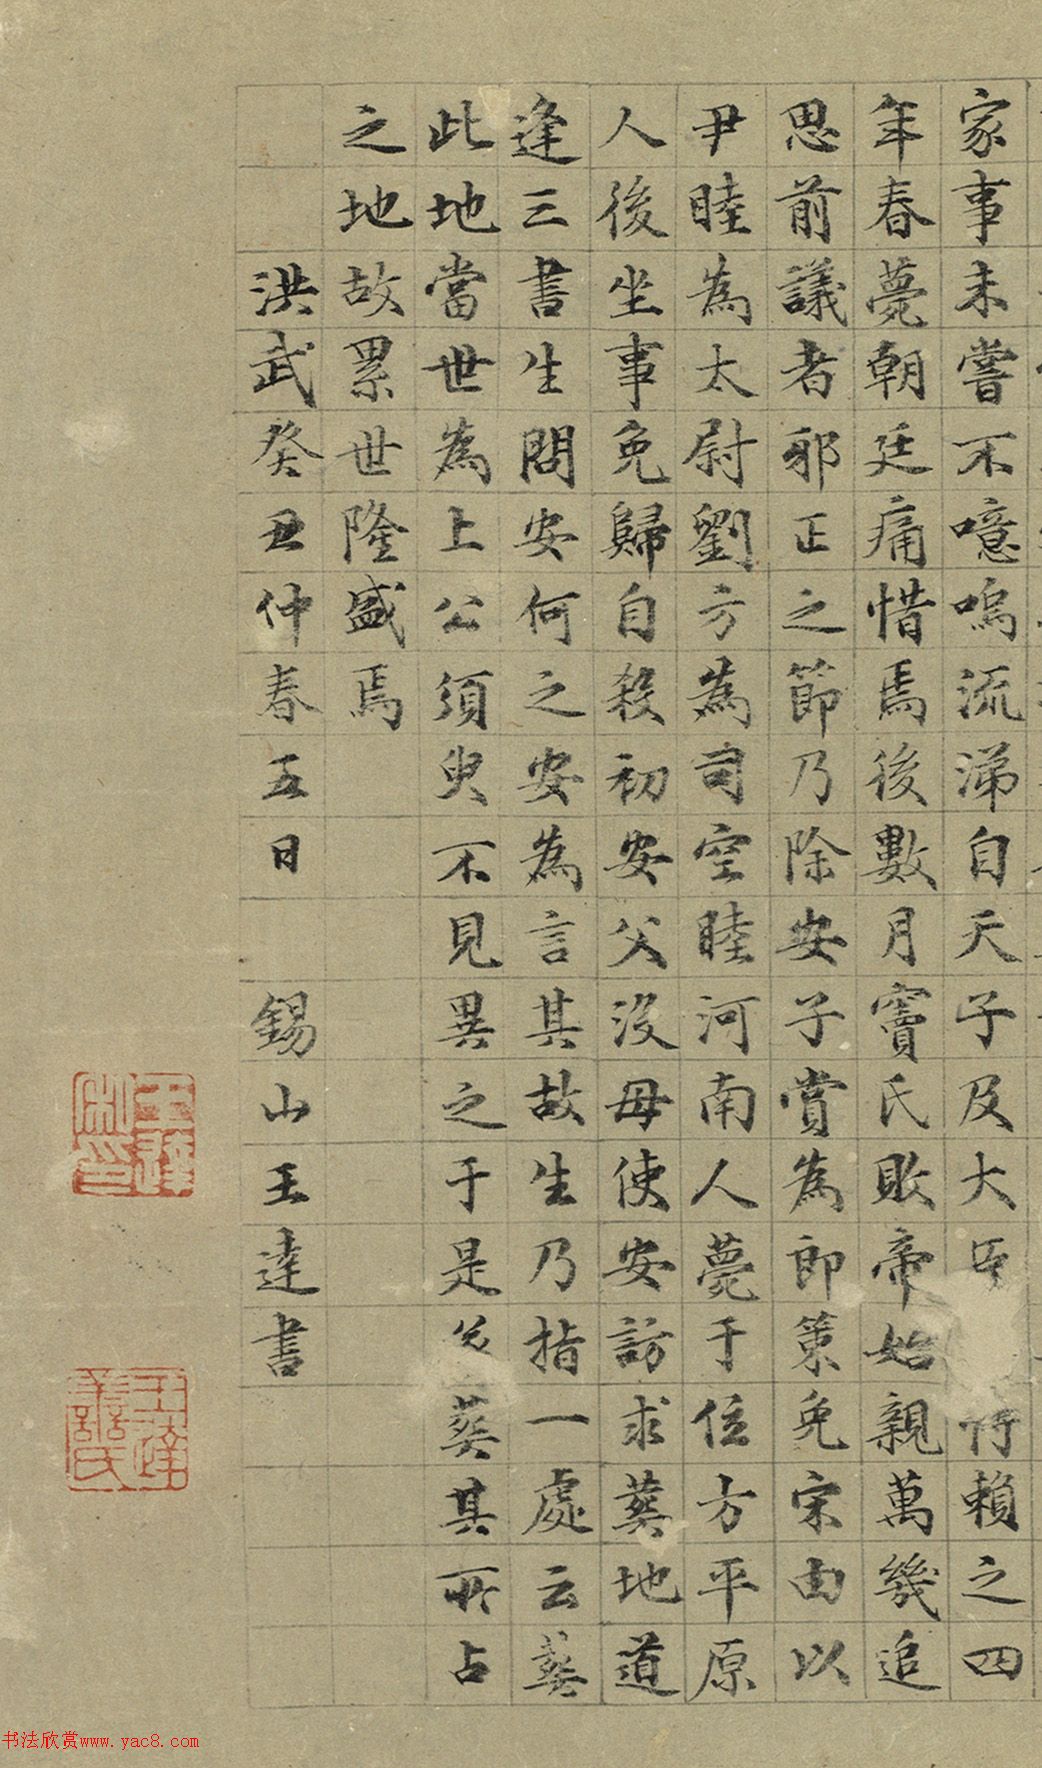 家事未嘗不噫嗚流涕自天子及大臣 恃賴之四
年春薨朝廷痛惜焉後數月竇氏敗帝始親萬幾追
思前議者邪正之節乃除安子賞為郎策免宋由以
尹睦為太尉劉方為司空睦河南人薨于位方平原
人後坐事免歸自殺初安父沒母使安訪求葬地道
逢三書生問安何之安為言其故生乃指一處云葬
此地當世為上公須臾不見異之于是 葬其所占
之地故累世隆盛焉
洪武癸丑仲春五日 錫山王達書
书法欣赏www.yac8.com